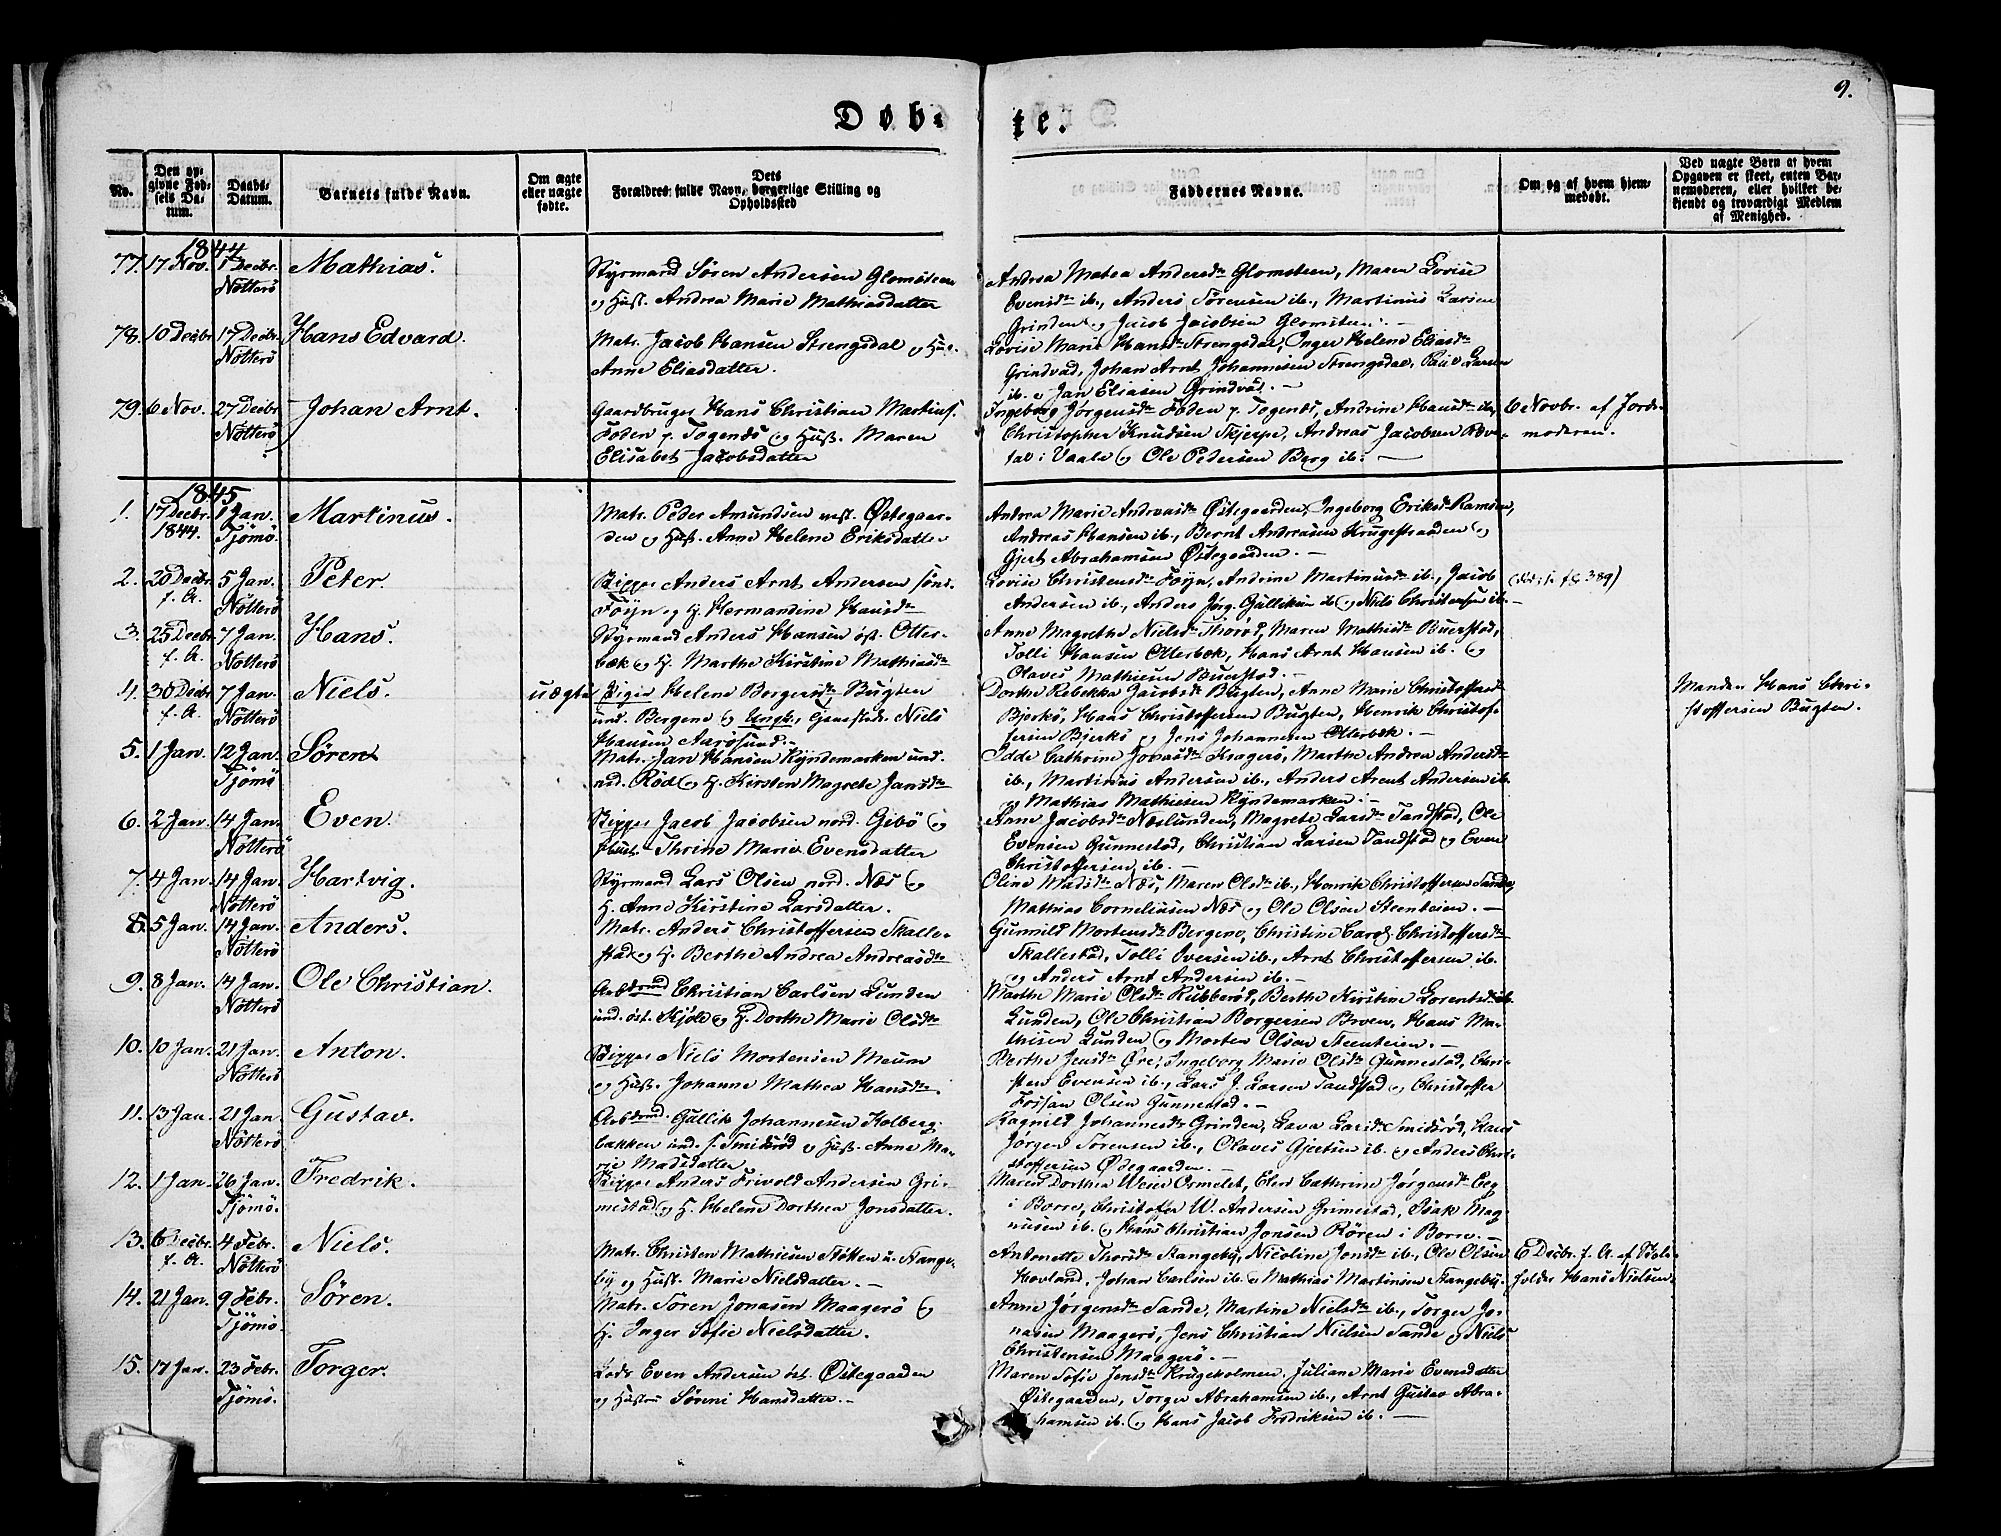 9.
Døb-te.
No.
Den op-
givne Fød-
sels Da-
tum.
Daabs-
Datum.
Barnets fulde Navn.
Om ægte
eller uægte
fødte.
Dets
Forældres fulde Navn, borgerlige Stilling og
Opholdssted
Faddernes Navne.
Om og af hvem hjem-
medøbt.
Ved uægte Børn af hvem
Opgaven er skeet, enten Bar-
nemoderen, eller hvilket be-
kjendt og troværdigt Medlem
af Menighed.
1844
77. 17 Nov. 1 Decbr. Nötterö Mathias.
Styrmand Søren Andersen Glomsteen
og Hust. Andrea Marie Mathiasdatter
Andrea Matea Andersdtr Glomsteen, Maren Lovise
Evensdtr ib., Anders Sørensen ib., Martinus Larsen
Grinden og Jacob Jacobsen Glomsteen. —
78. 10 Decbr 17 Decbr. Nötterö Hans Edvard.
Matr. Jacob Hansen Strengsdal og Hus.
Anne Eliasdatter.
Lovise Marie Hansdtr Strengsdal, Inger Helene Eliasdtr
Grindvad, Johan Arnt Johannesen Strengsdal, Poul Larsen
ib. og Jan Eliasen Grindvad. —
79. 6 Nov. 27 Decbr. Nötterö Johan Arnt.
Gaardbruger Hans Christian Martins.
Foden p. Togends og Hust. Maren
Elisabet Jacobsdatter
Ingeborg Jørgensdtr Foden p. Togends, Andrine Hansdtr ib.,
Christopher Knudsen Skjerpe, Andreas Jacobsen Reve-
tal i Vaale og Ole Pedersen Berg ib. —
6 Novbr. af Jord-
moderen.
1845
1. 17 Decbr. 1844. 1 Jan. Tjömö Martinus.
Matr. Peder Amundsen vest. Østegaar-
den og Hust. Anne Helene Eriksdatter
Andrea Marie Andreasdtr Østegaarden, Ingeborg Eriksd. Ramsen,
Andreas Hansen ib., Bernt Andreasen Krugestraaden og
Gjert Abrahamsen Østegaarden. —
2. 20 Decbr f. A. 5 Jan. Nötterö Peter.
Skipper Anders Arnt Andersen sönd.
Föyn og H. Hermandine Hansdtr
Lovise Christensdtr Föyn, Andrine Martinusdtr ib., Jacob
Andersen ib., Anders Jörg. Gulliksen ib. og Niels Christensen ib. —
3. 25 Decbr f. A. 7 Jan. Nötterö Hans.
Styrmand Anders Hansen öst. Otter-
bæk og H. Marthe Kirstine Mathiasdtr
Anne Magrethe Nielsdtr Thorød, Maren Mathisdtr Buerstad,
Tolli Hansen Otterbæk, Hans Arnt Hansen ib. og
Olaves Mathiesen Buerstad.
4. 30 Decbr f. A. 7 Jan. Nötterö Niels. uægte
Pigen Helene Borgersdtr Bugten
und. Bergene og Ungk. Gjemsteds Niels
Hansen Aarøsund. —
Dorthe Rebekka Jacobsdtr Bugten, Anne Marie Christoffersdtr
Bjerkö, Hans Christoffersen Bugten, Henrik Christof-
fersen Bjerkö og Jens Johannesen Otterbæk. —
Manden Hans Chri-
stoffersen Bugten.
5. 1 Jan. 12 Jan. Tjömö Sören
Matr. Jan Hansen Kyndemarken und.
nd. Röd og H. Kirsten Magrete Jansdtr
Idde Cathrine Jonasdtr Kragerö, Marthe Andrea Andersdtr
ib., Martinus Andersen ib., Anders Arent Andersen ib.
og Mathias Mathiesen Kyndemarken. —
6. 2 Jan. 14 Jan. Nötterö Even.
Skipper Jacob Jacobsen nord. Gibö og
Hust. Thrine Marie Evensdatter
Anne Jacobsdtr Næslunden, Magrete Larsdtr Sandstad, Ole
Evensen Gunnestad, Christian Larsen Sandstad og Even
Christoffersen ib. —
7. 4 Jan. 14 Jan. Nötterö Hartvig.
Styrmand Lars Olsen nord. Næs og
H. Anne Kirstine Larsdatter.
Oline Madsdtr Næs, Maren Olsdtr ib., Henrik Christoffersen Sande,
Mathias Corneliusen Næs og Ole Olsen Steenteien. —
8. 5 Jan. 14 Jan. Nötterö Anders.
Matr. Anders Christoffersen Skalle-
stad og H. Berthe Andrea Andreasdtr
Gunnild Mortensdtr Bergene, Christine Carol. Christoffersdtr
Skallestad, Tolli Iversen ib., Arnt Christoffersen ib.
og Anders Arnt Andersen ib. —
9. 8 Jan. 14 Jan. Nötterö Ole Christian.
Arbdsmd Christian Carlsen Lunden
und. öst. Kjöle og H. Dorthe Marie Olsdtr
Marthe Marie Olsdtr Rubberød, Berthe Kirstine Lorentsdtr ib.
Lunden, Ole Christian Borgersen Broen, Hans Ma-
thisen Lunden og Morten Olsen Steenteien. —
10. 10 Jan. 21 Jan. Nötterö Anton.
Skipper Niels Mortensen Meum
og Hust. Johanne Mathea Hansdtr.
Berthe Jensdtr Öre, Ingeborg Marie Olsdtr Gunnestad, Chri-
sten Evensen ib., Lars J. Larsen Sandstad og Christoffer
Fossan Olsen Gunnestad. —
11. 13 Jan. 21 Jan Nötterö Gustav.
Arbdsmd. Gullik Johannesen Kolberg-
bakken und. s. Smidsröd og Hust. Anne Ma-
rie Madsdatter.
Ragnild Johannesdtr Grinden, Lava Larsdtr Smidsröd, Hans
Jörgen Sörensen ib., Olaves Gjertsen ib. og Anders Chri-
stoffersen Ödegaarden. —
12. 1 Jan. 26 Jan. Tjömö. Fredrik.
Skipper Anders Frivold Andersen Gri-
mestad og H. Helene Dorthea Jonsdatter.
Maren Dorthea Weier Ormelet, Elen Cathrine Jörgensdtr Eeg
i Borre, Christoffer W. Andersen Grimestad, Isak Mag-
nusen ib. og Hans Christian Jonsen Rören i Borre. —
13. 6 Decbr. f. A. 4 Febr. Nötterö Niels.
Matr. Christen Mathiesen Støtten u. Stange-
by og Hust. Marie Nielsdatter. —
Antonette Thorsdtr Stangeby, Nicoline Jensdtr ib., Ole Olsen
Hovland, Johan Carlsen ib. og Mathias Martinsen Stangeby.
6 Decbr. f. A. af Skole-
holder Hans Nielsen.
14. 21 Jan. 9 Febr. Tjömö. Sören.
Matr. Sören Jonasen Maagerö og
H. Inger Sofie Nielsdatter.
Anne Jörgensdtr Sande, Martine Nielsdtr ib., Torger Jo-
nasen Maagerö, Jens Christian Nielsen Sande og Niels
Christensen Maagerö. —
15. 17 Jan. 23 Febr. Tjömö. Torger.
Lods Even Andersen öst. Østegaarden
og Hustru Sörine Hansdatter. —
Maren Sofie Jensdtr Krugeholmen, Juliane Marie Evensdatter
Østegaarden, Torger Abrahamsen ib., Arnt Gustav Abra-
hamsen ib. og Hans Jacob Fredriksen ib. —